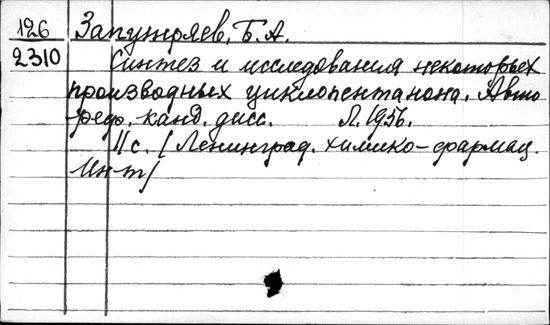 126 Запутряев, Б.А.
2310 Синтез и исследования некоторых
производных циклопентанона. Авто
реф. канд. дисс. Л. 1956.
11с. (Ленинград. химико-фармац.
Ин-т)